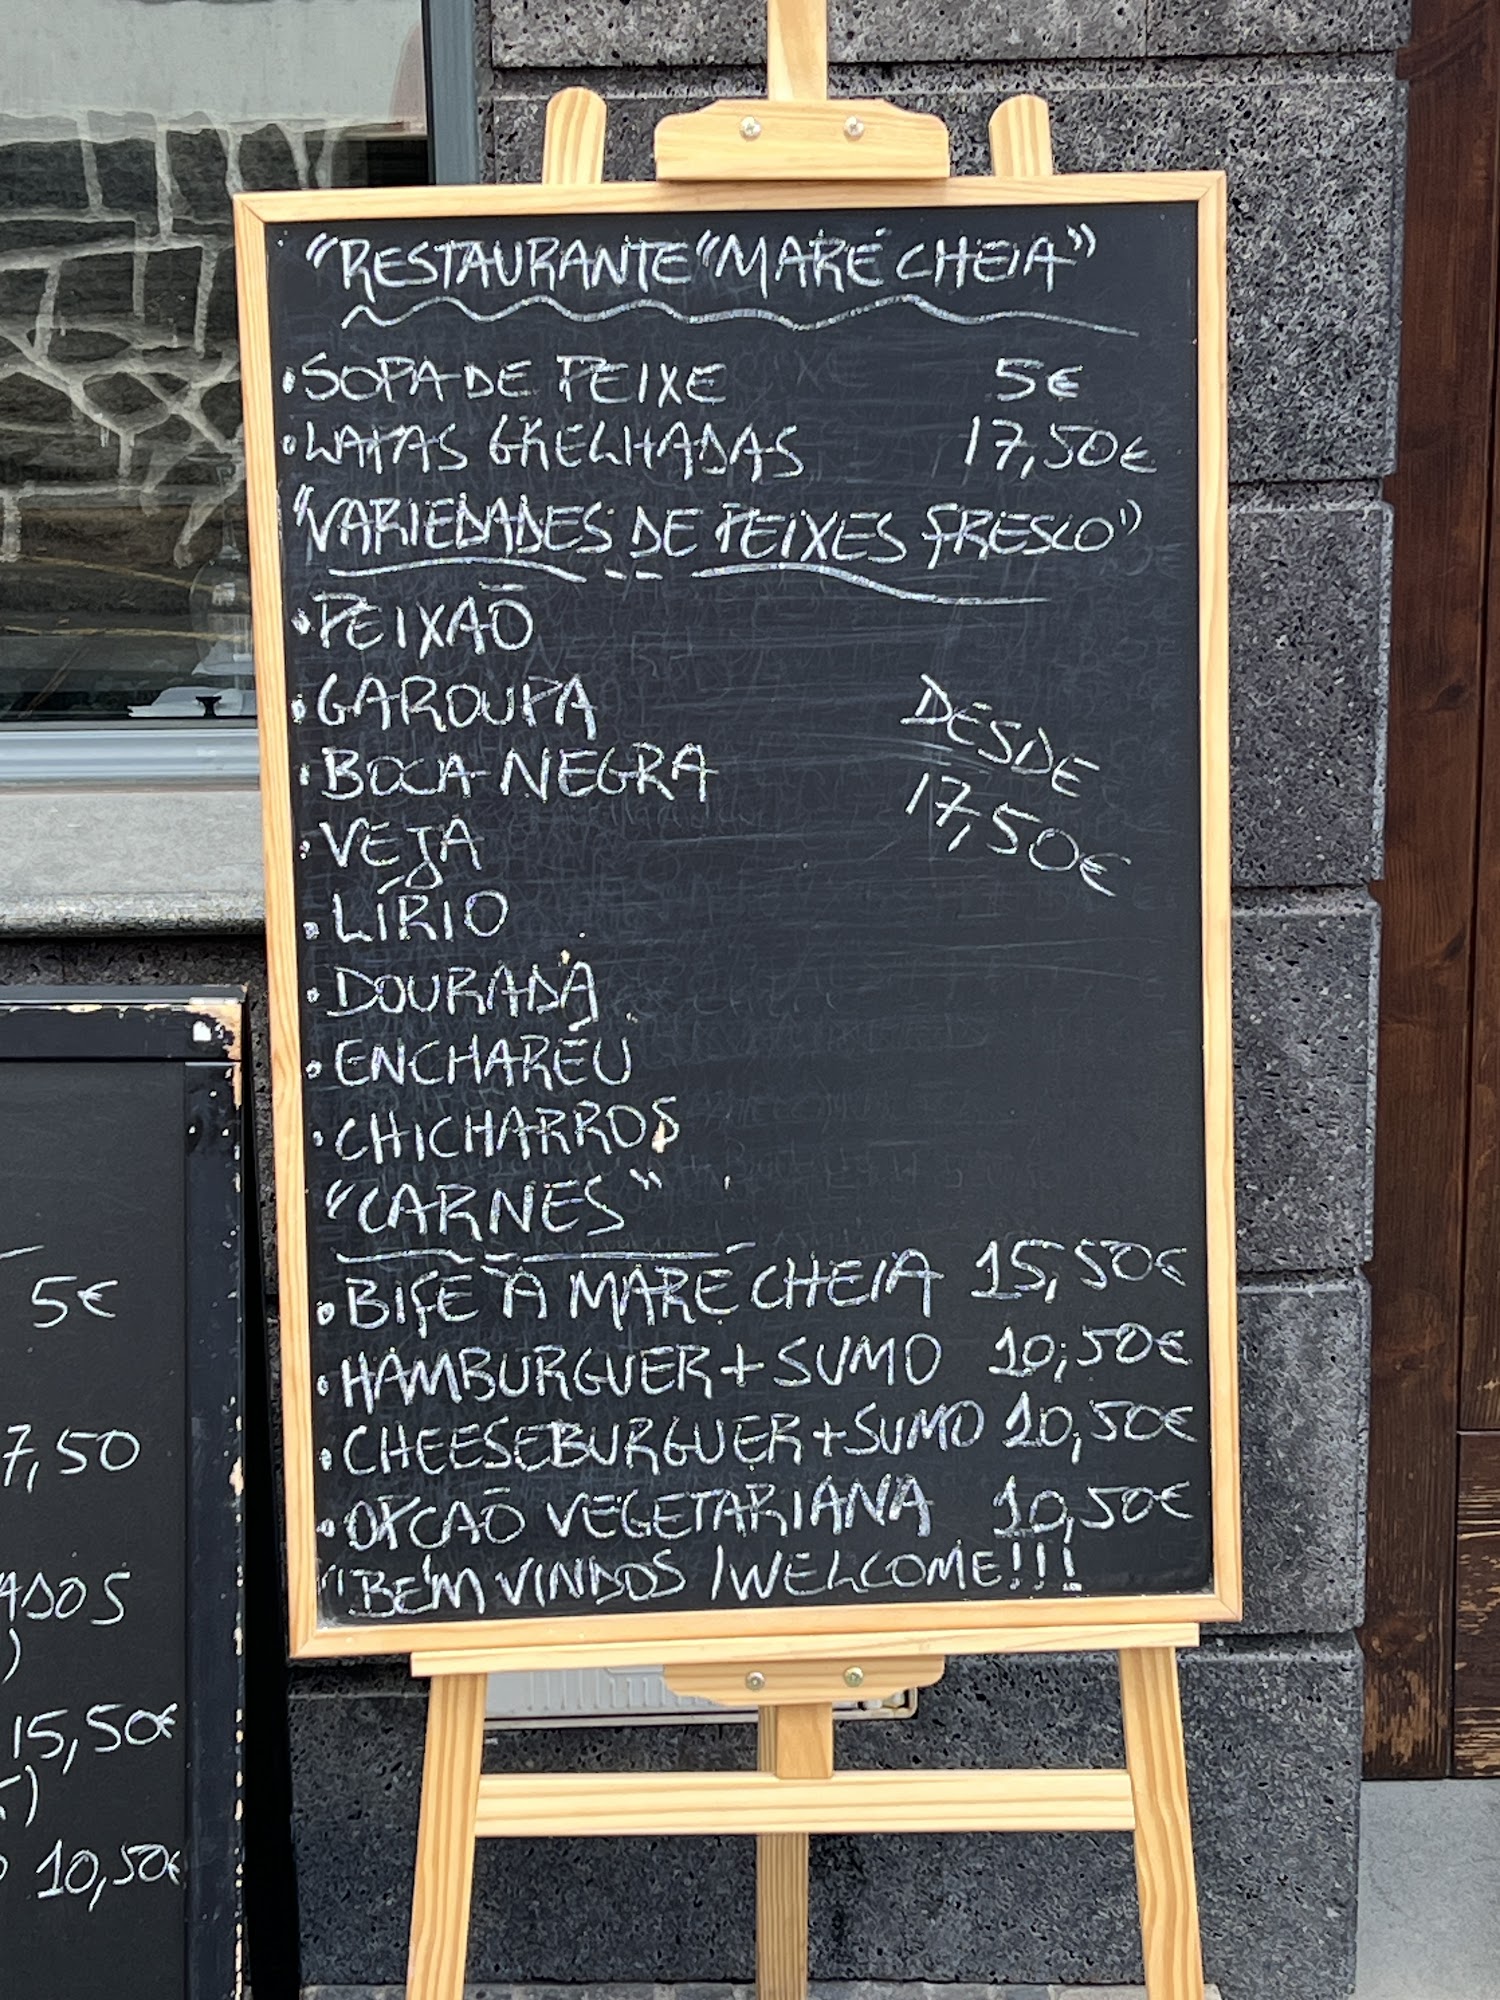 "RESTAURANTE "MARÉ CHEIA"
• SOPA DE PEIXE 5€
• LAPAS GRELHADAS 17,50€
"VARIEDADES DE PEIXES FRESCO"
• PEIXAÕ
• GAROUPA
• BOCA NEGRA
• VEJA
• LÍRIO
• DOURADA
• ENCHARÉU
• CHICHARROS
DESDE
17,50€
"CARNES"
• BIFE À MARÉ CHEIA 15,50€
• HAMBURGUER + SUMO 10,50€
• CHEESEBURGUER + SUMO 10,50€
• OPCAÕ VEGETARIANA 10,50€
"BEM VINDOS / WELCOME!!!
5€
7,50
ADOS
)
15,50€
)
10,50€